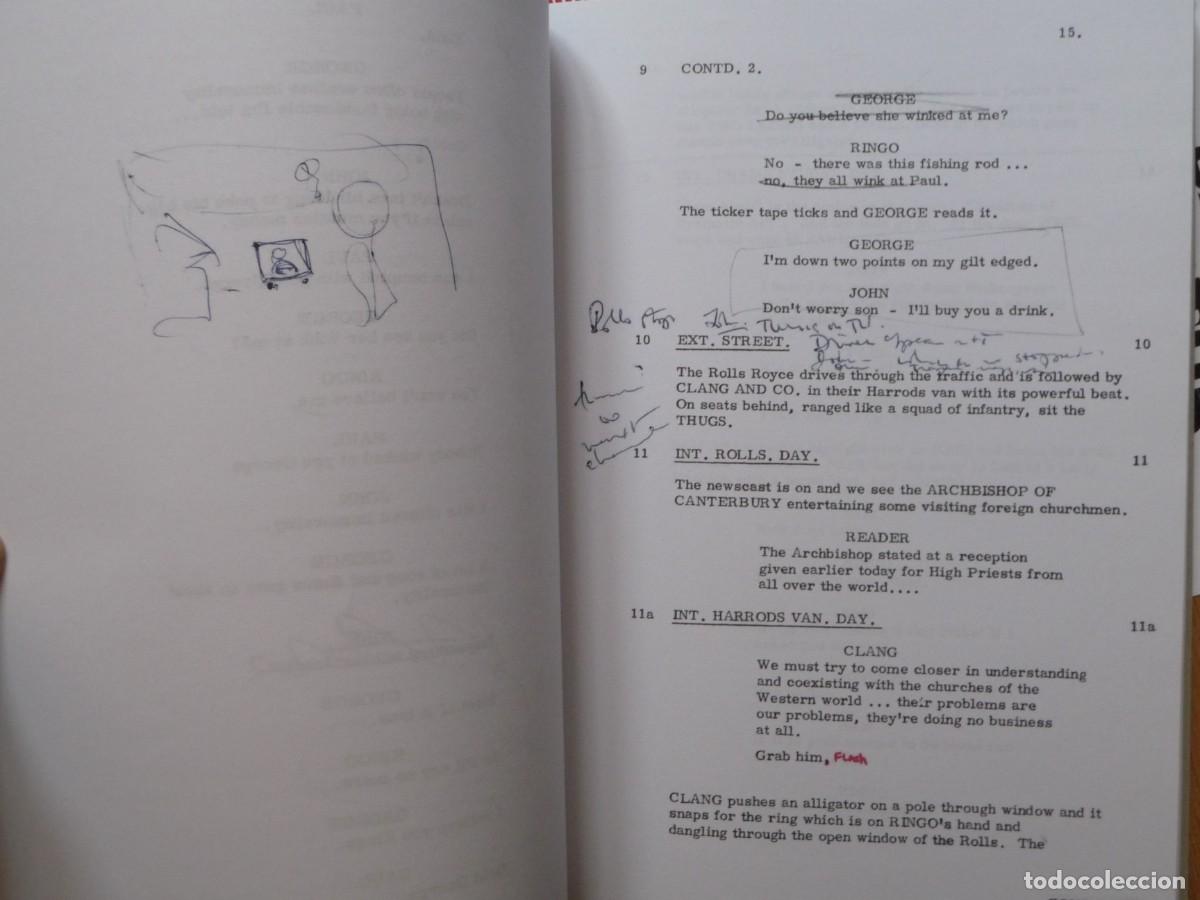 15.
9 CONTD. 2.
GEORGE
Do you believe she winked at me?
RINGO
No - there was this fishing rod ...
no, they all wink at Paul.
The ticker tape ticks and GEORGE reads it.
GEORGE
I'm down two points on my gilt edged.
JOHN
Don't worry son - I'll buy you a drink.
Rolls stops
10 EXT. STREET. 10
The Rolls Royce drives through the traffic and is followed by
CLANG AND CO. in their Harrods van with its powerful beat.
On seats behind, ranged like a squad of infantry, sit the
THUGS.
11 INT. ROLLS. DAY. 11
The newscast is on and we see the ARCHBISHOP OF
CANTERBURY entertaining some visiting foreign churchmen.
READER
The Archbishop stated at a reception
given earlier today for High Priests from
all over the world....
11a INT. HARRODS VAN. DAY. 11a
CLANG
We must try to come closer in understanding
and coexisting with the churches of the
Western world ... their problems are
our problems, they're doing no business
at all.
Grab him, FLASH
CLANG pushes an alligator on a pole through window and it
snaps for the ring which is on RINGO's hand and
dangling through the open window of the Rolls. The
todocoleccion